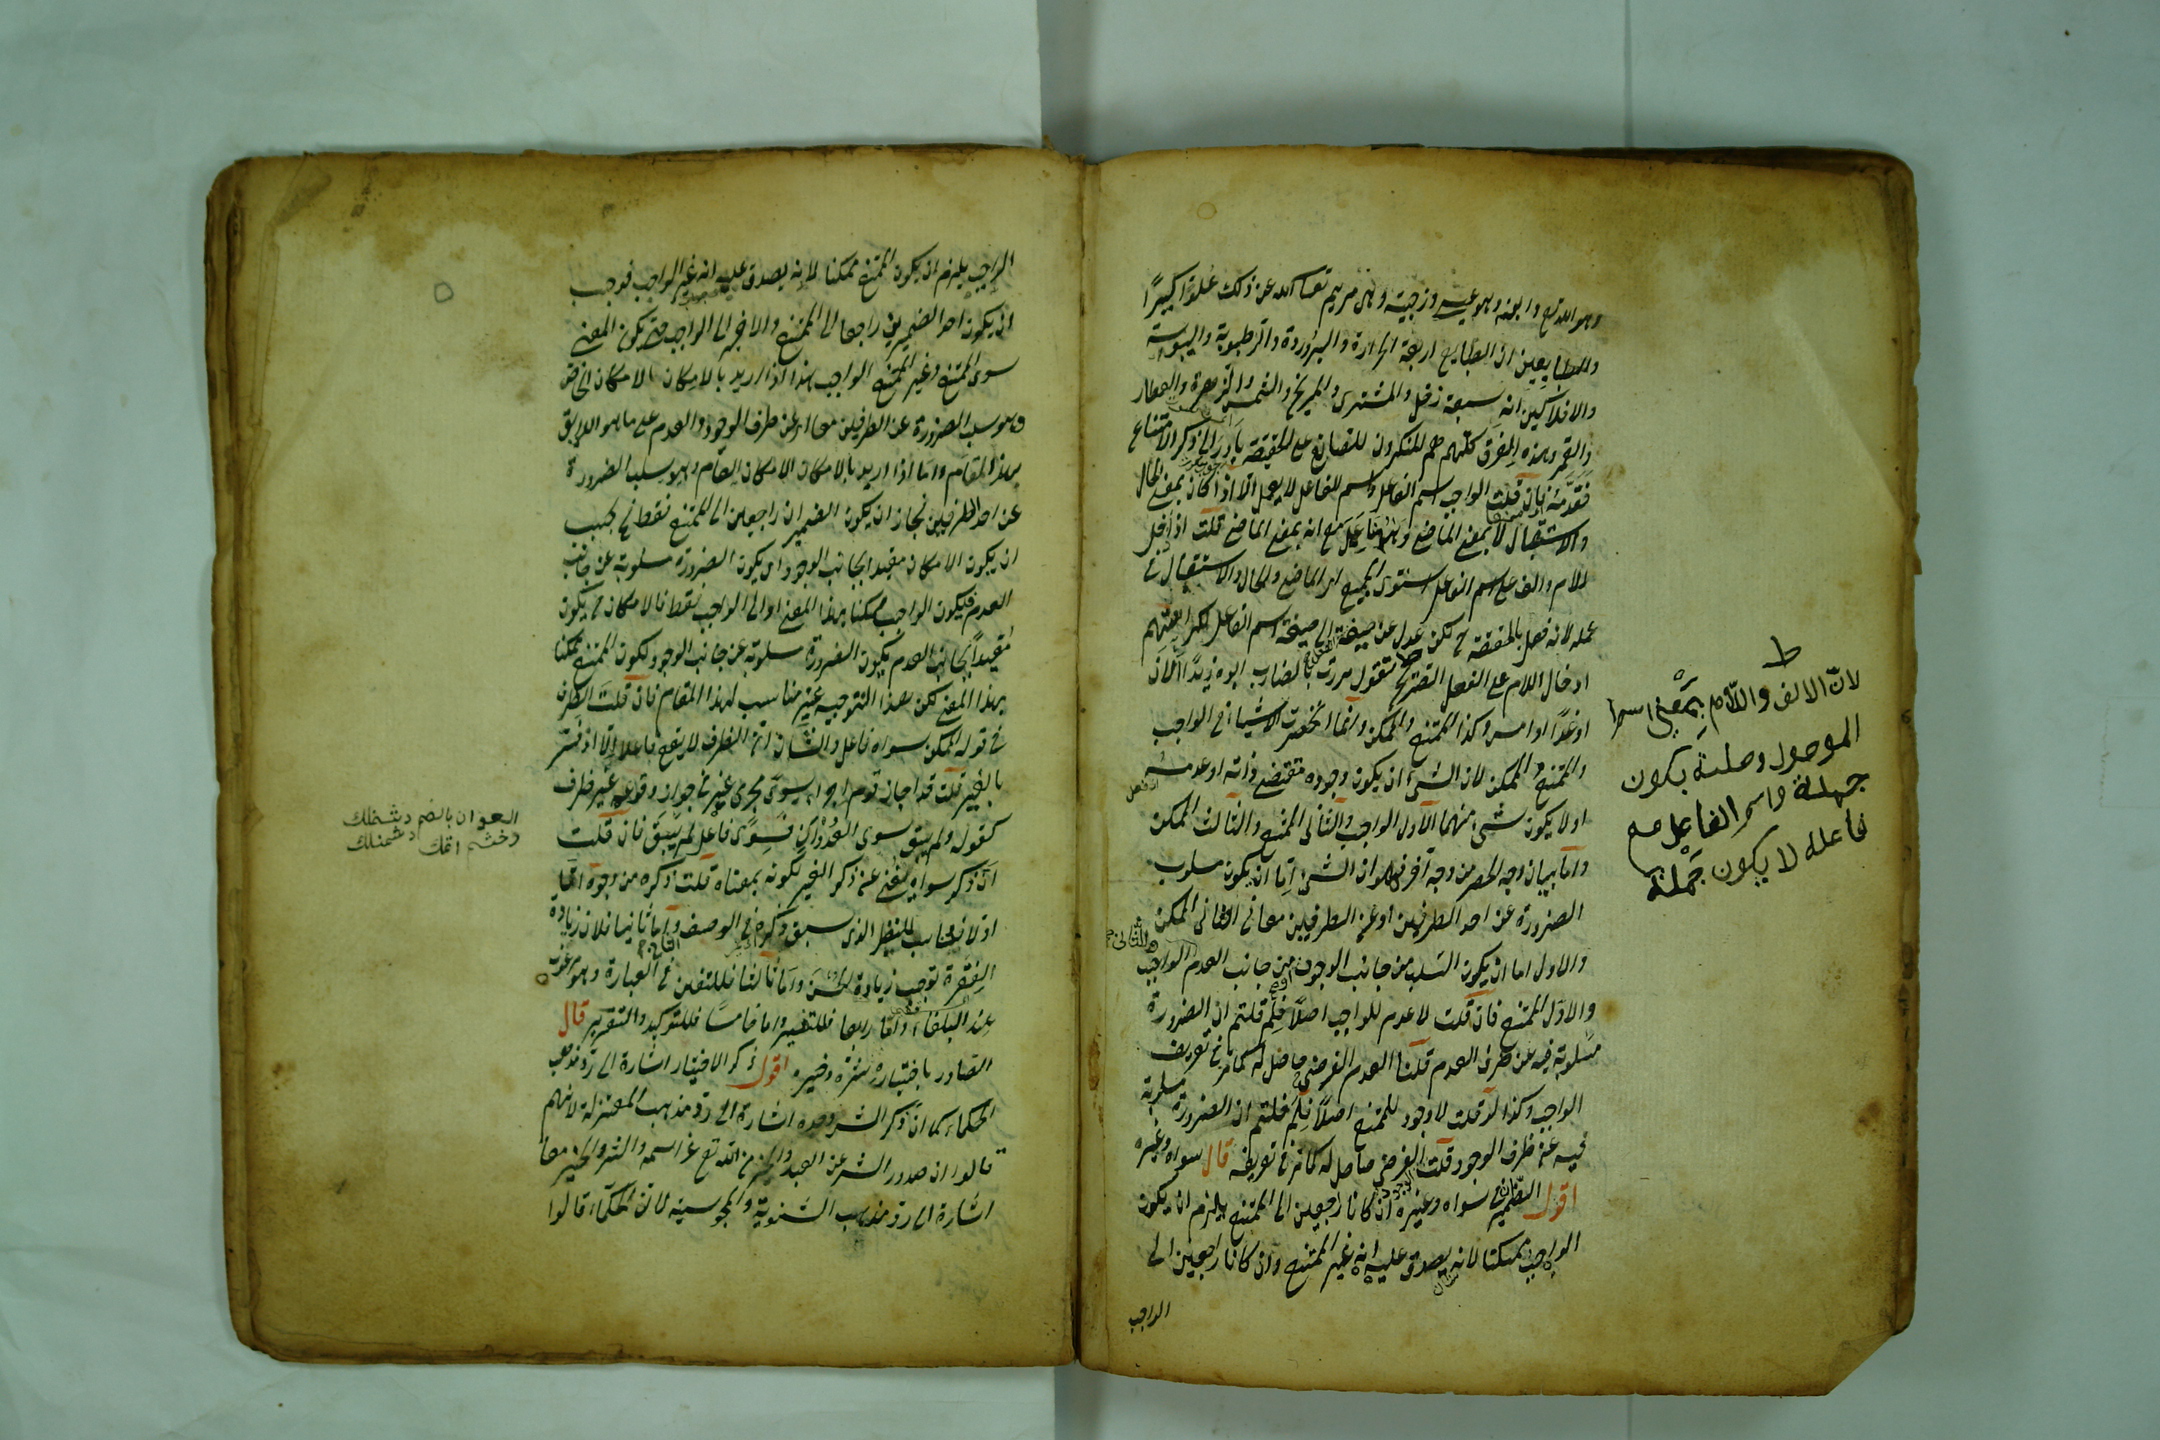 وهو الله تع وابنه وهو عيسى وزوجته وهى مريم تعالى الله عن ذلك علوّا كبيرًا
والطبايعين ان الطبايع اربعة الحرارة والبرودة والرطوبة واليبوسة
والافلاكيين انه سبعة زحل والمشترى والمريخ والشمس والزهرة والعطار
والقمر وهذه الفرق كلهم هم المنكرون للصانع على الحقيقة بادر الى ذكر الامتناع
فقدّمه فان قلت الواجب اسم الفاعل واسم الفاعل لا يعمل الا اذا كان بمعنى الحال
والاستقبال لا بمعنى الماضى وههنا عمل مع انه بمعنى الماضى قلت اذا دخل
اللام والف على اسم الفاعل استوى الجميع اى الماضى والحال والاستقبال فى
عمله لانه فعل بالحقيقة لكن عدل عن صيغة الى صيغة اسم الفاعل لكراهتهم
ادخال اللام على الفعل الصريح فتقول مررت بالضارب ابوه زيدًا الآن
اوغدًا او امس وكذا الممتنع والممكن وانما انحصرت الاشياء فى الواجب
والممتنع والممكن لان الشئ ان يكون وجوده مقتضى ذاته او عدمه
اولا يكون شئ منهما الاول الواجب والثانى الممتنع والثالث الممكن
واما بيان وجه الحصر من وجه آخر فهو ان الشئ اما ان يكون سلوب
الضرورة عن احد الطرفين او عن الطرفين معا فى الثانى الممكن
والاول اما ان يكون السلب من جانب الوجود من جانب العدم الواجب
والاول الممتنع فان قلت لا عدم للواجب اصلًا فلم قلتم ان الضرورة
مسلوبة فيه عن طرف العدم قلنا العدم الفرضى حاصل له كما مر فى تعريف
الواجب وكذا لو قلت لا وجود للممتنع اصلًا فلم قلتم ان الضرورة مسلوبة
فيه عن طرف الوجود قلت الفرضى حاصل له كما مر فى تعريفه قال سواه وغيره
اقول الضمير فى سواه وغيره ان كانا راجعين الى الممتنع يلزم ان يكون
الواجب ممكنا لانه يصدق عليه انه غير الممتنع وان كانا راجعين الى
الواجب
ط
لانّ الالف واللام بمعنى اسم
الموصول وصلته يكون
جملة واسم الفاعل مع
فاعله لا يكون جملة
الواجب يلزم ان يكون الممتنع ممكنا لانه يصدق عليه انه غير الواجب فوجب
ان يكون احد الضميرين راجعا الى الممتنع والاخر الى الواجب حتى يكون المعنى
سوى الممتنع وغير الممتنع الواجب هذا اذا اريد بالامكان الامكان الخاص
وهو سلب الضرورة عن الطرفين معا اى عن طرف الوجود والعدم على ما هو اللايق
بهذا المقام واما اذا اريد بالامكان الامكان العام وهو سلب الضرورة
عن احد الطرفين فجاز ان يكون الضميران راجعين الى الممتنع فقط فح يجب
ان يكون الامكان مقيدا بجانب الوجود اى يكون الضرورة مسلوبة عن جانب
العدم فيكون الواجب ممكنا بهذا المعنى او الى الواجب فقط فالامكان ح يكون
مقيداً بجانب العدم يكون الضرورة مسلوبة عن جانب الوجود لكون الممتنع ممكنا
بهذا المعنى لكن هذا التوجيه غير مناسب لهذا المقام فان قلت الظرف
فى قوله الممكن سواه فاعل والشان ان الظرف لا يقع فاعلا الا اذ فسر
بالغير قلت قد اجاز قوم اجراء سوى مجرى غير فى جواز وقوعه غير ظرف
كقوله ولم يبق سوى العدوان فسوى فاعل لم يبق فان قلت
انّ ذكر سواه يغنى عن ذكر الغير لكونه بمعناه قلت ذكره من وجوه اما
اولا فيناسب للنظر الذى سبق ذكره فى الوصف واما ثانيا فلان زيادة
الفقرة توجب زيادة الحسن واما ثالثا فللتفنن فى العبارة وهو مرغوب
عند البلغاء واما رابعا فللتفسير واما خامسًا فللتوكيد والتقرير قال
الصادر باختياره شره وخيره اقول ذكر الاختيار اشارة الى رد مذهب
الحكماء كما ان ذكر الشر وحده اشارة الى رد مذهب المعتزلة لانهم
قالوا ان صدور الشر عن العبد والخير من الله تع عز اسمه والشر والخير معا
اشارة الى رد مذهب الثنوية والمجوسية لان الحكماء قالوا
العدوان بالضم دشمنلك